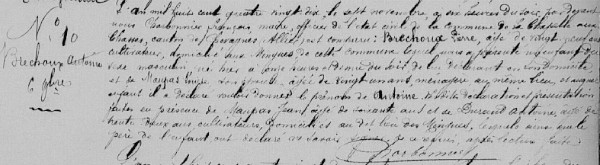 N° 10
Brechoux Antoine
6 9bre
L'an mil huit cent quatre vingt dix le sept novembre à six heures du soir par devant
nous Charbonnier François maire, officier de l'état civil de la commune de la Chapelle aux
Chasses, canton de Chevagnes (Allier) est comparu Brechoux Pierre, âgé de vingt neuf ans
cultivateur, domicilié aux de cette commune lequel nous a présenté un enfant du
sexe masculin, né hier à six heures du soir de lui déclarant en son domicile
et de Maupas Louise son épouse, âgée de vingt un ans ménagère au même lieu et auquel
enfant il a déclaré vouloir donner le prénom de Antoine. Les dites déclaration et présentation
faites en présence de Maupas Jean âgé de soixante ans et de Durand Antoine, âgé de
trente deux ans cultivateurs, domiciliés au dit lieu des lesquels ainsi que le
père de l'enfant ont déclaré ne savoir signer, de ce requis, après lecture faite
Charbonnier